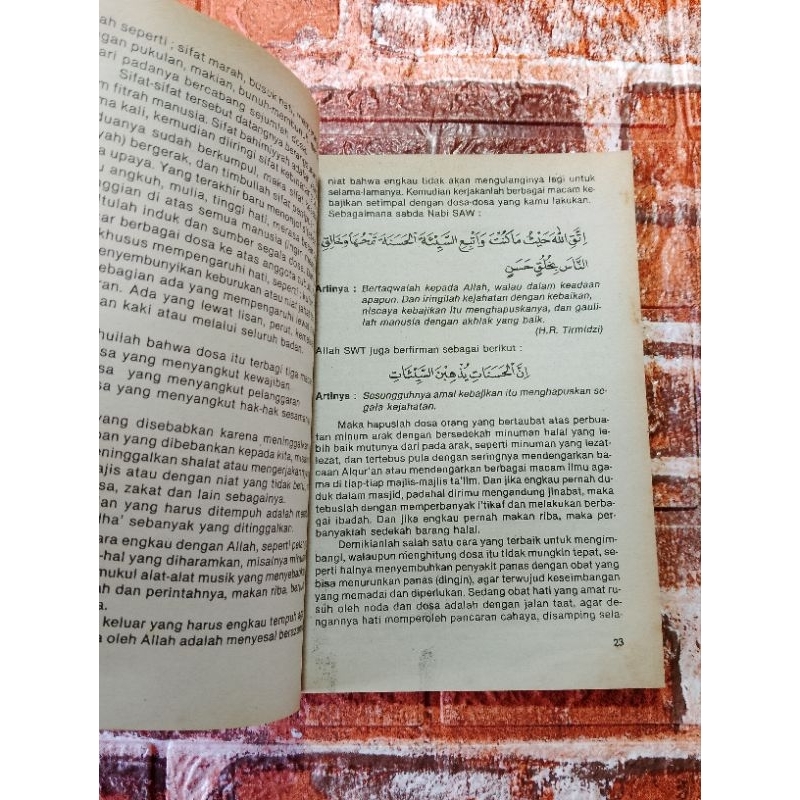 ah seperti ; sifat marah, busuk hati,
gan pukulan, makian, bunuh-
ari padanya bercabang sejumlah dosa
Sifat-sifat tersebut datangnya
m fitrah manusia. Sifat bahimiyyah adalah
ma kali, kemudian diiringi sifat
duanya sudah berkumpul, maka sifat
yah) bergerak, dan timbullah sifat
a upaya. Yang terakhir baru
u angkuh, mulia, tinggi hati, merasa
nggian di atas semua manusia (ingin
itulah induk dan sumber segala dosa.
ar berbagai dosa ke atas anggota
khusus mempengaruhi hati, seperti ;
enyembunyikan keburukan atau niat jahat
ebagian ada yang mempengaruhi lewat
ran. Ada yang lewat lisan, perut,
n kaki atau melalui seluruh badan.
huilah bahwa dosa itu terbagi tiga
sa yang menyangkut kewajiban.
sa yang menyangkut pelanggaran
sa yang menyangkut hak-hak sesama
yang disebabkan karena meninggalkan
ban yang dibebankan kepada kita,
eninggalkan shalat atau mengerjakan
ajis atau dengan niat yang tidak
sa, zakat dan lain sebagainya.
an yang harus ditempuh adalah
dha' sebanyak yang ditinggalkan.
ara engkau dengan Allah, seperti
-hal yang diharamkan, misalnya
mukul alat-alat musik yang
ah dan perintahnya, makan riba,
a.
n keluar yang harus engkau tempuh
a oleh Allah adalah menyesal
niat bahwa engkau tidak akan mengulanginya lagi untuk
selama-lamanya. Kemudian kerjakanlah berbagai macam ke-
bajikan setimpal dengan dosa-dosa yang kamu lakukan.
Sebagaimana sabda Nabi SAW :
اِتَّقِ اللهَ حَيْثُ مَا كُنْتَ وَاَتْبِعِ السَّيِّئَةَ الْحَسَنَةَ تَمْحُهَا وَخَالِقِ
النَّاسَ بِخُلُقٍ حَسَنٍ
Artinya : Bertaqwalah kepada Allah, walau dalam keadaan
apapun. Dan iringilah kejahatan dengan kebaikan,
niscaya kebajikan itu menghapuskanya, dan gauli-
lah manusia dengan akhlak yang baik.
(H.R. Tirmidzi)
Allah SWT juga berfirman sebagai berikut :
اِنَّ الْحَسَنَاتِ يُذْهِبْنَ السَّيِّئَاتِ
Artinya : Sesungguhnya amal kebajikan itu menghapuskan se-
gala kejahatan.
Maka hapuslah dosa orang yang bertaubat atas perbua-
tan minum arak dengan bersedekah minuman halal yang le-
bih baik mutunya dari pada arak, seperti minuman yang lezat-
lezat, dan tertebus pula dengan seringnya mendengarkan ba-
caan Alqur'an atau mendengarkan berbagai macam ilmu aga-
ma di tiap-tiap majlis-majlis ta'lim. Dan jika engkau pernah du-
duk dalam masjid, padahal dirimu mengandung jinabat, maka
tebuslah dengan memperbanyak i'tikaf dan melakukan berba-
gai ibadah. Dan jika engkau pernah makan riba, maka per-
banyaklah sedekah barang halal.
Demikianlah salah satu cara yang terbaik untuk mengim-
bangi, walaupun menghitung dosa itu tidak mungkin tepat, se-
perti halnya menyembuhkan penyakit panas dengan obat yang
bisa menurunkan panas (dingin), agar terwujud keseimbangan
yang memadai dan diperlukan. Sedang obat hati yang amat ru-
suh oleh noda dan dosa adalah dengan jalan taat, agar de-
ngannya hati memperoleh pancaran cahaya, disamping sela-
23